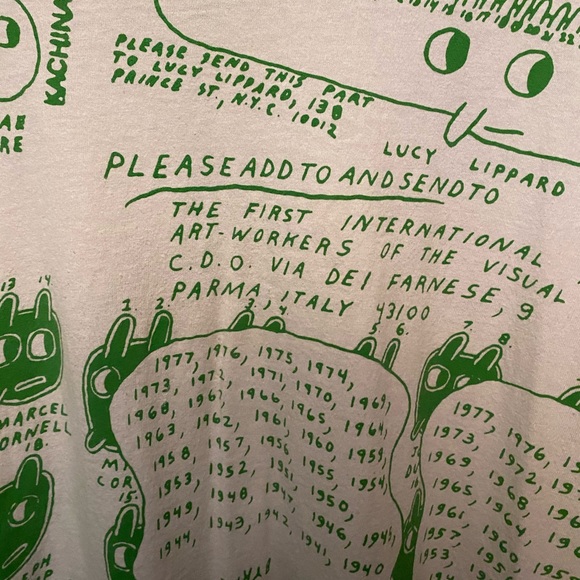 KACHINA
PLEASE SEND THIS PART
TO LUCY LIPPARD, 138
PRINCE ST, N.Y.C. 10012
LUCY LIPPARD
PLEASE ADD TO AND SEND TO
THE FIRST INTERNATIONAL
ART-WORKERS OF THE VISUAL
C.D.O. VIA DEI FARNESE, 9
PARMA, ITALY 43100
13 14
1. 2. 3, 4. 5. 6. 7. 8
MARCEL
ORNELL
18.
15.
1977, 1976, 1975, 1974,
1973, 1972, 1971, 1970, 1969,
1968, 1967, 1966, 1965, 1964,
1963, 1962, 1961, 1960, 1959,
1958, 1957, 1956, 1955, 1954,
1953, 1952, 1951, 1950,
1949, 1948, 1947, 1946, 1945,
1944, 1943, 1942, 1941, 1940
1977, 1976,
1973, 1972,
1969, 1968,
1965, 1964,
1961, 1960
1957, 195
1953, 195